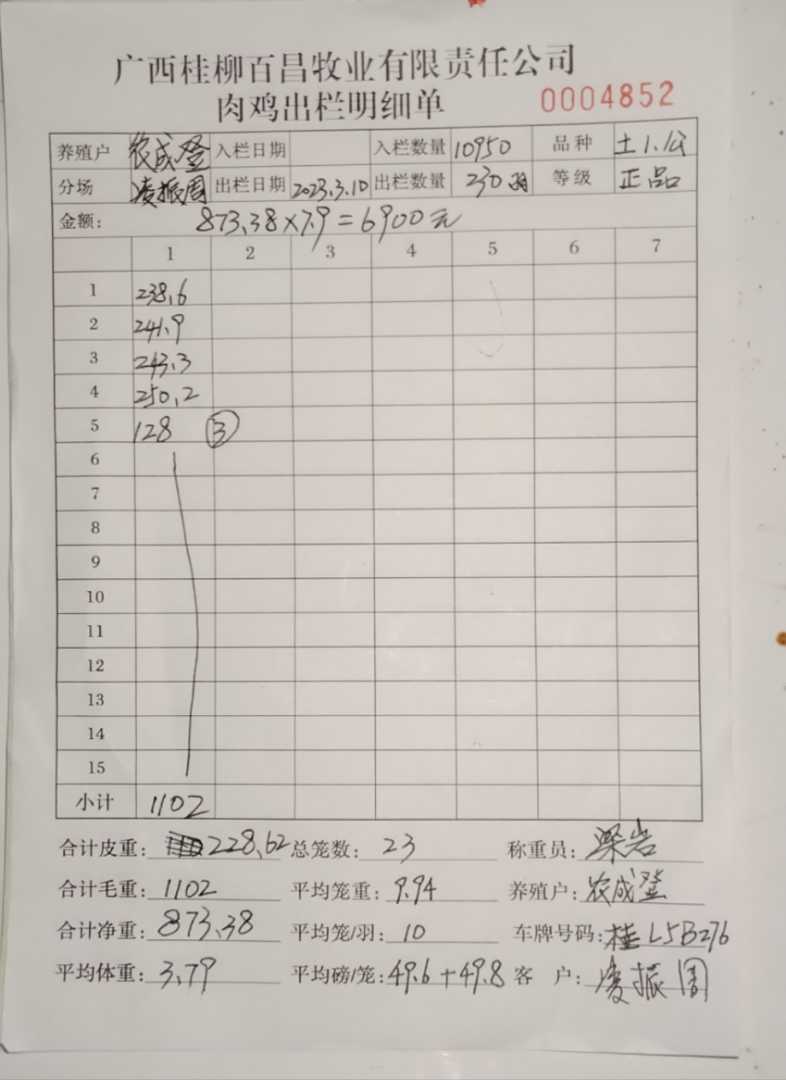 广西桂柳百昌牧业有限责任公司
肉鸡出栏明细单 0004852
养殖户 农成登 入栏日期 入栏数量 10950 品种 土1.公
分场 凌振周 出栏日期 2023.3.10 出栏数量 230羽 等级 正品
金额: 873.38×7.9=6900元
1 2 3 4 5 6 7
1 238.6
2 241.9
3 243.3
4 250.2
5 128 ③
6
7
8
9
10
11
12
13
14
15
小计 1102
合计皮重: 228.62 总笼数: 23 称重员: 梁岩
合计毛重: 1102 平均笼重: 9.94 养殖户: 农成登
合计净重: 873.38 平均笼/羽: 10 车牌号码: 桂L5B276
平均体重: 3.79 平均磅/笼: 49.6+49.8 客 户: 凌振周